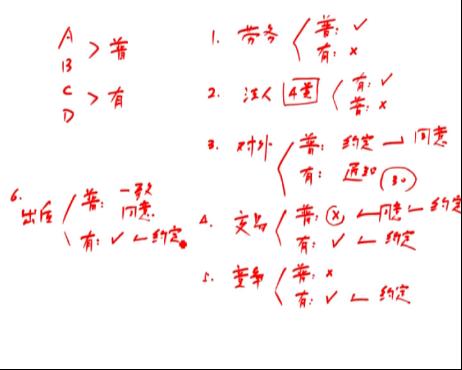 A
B > 普
C
D > 有
1. 劳务 普: ✓
有: ×
2. 法人 4类 有: ✓
普: ×
3. 对外 普: 约定 — 同意
有: 通知 30
4. 交易 普: × ← 同意 ← 约定
有: ✓ ← 约定
5. 竞争 普: ×
有: ✓ ← 约定
6. 出质 普: 一致
同意
有: ✓ ← 约定